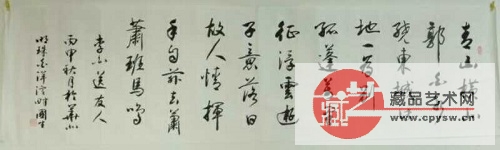 青山横北
郭白水
绕东城此
地一为别
孤蓬万里
征浮云游
子意落日
故人情挥
手自兹去萧
蕭班马鸣
李白送友人
丙申秋月於
明珠
藏品艺术网
www.cpysw.cn